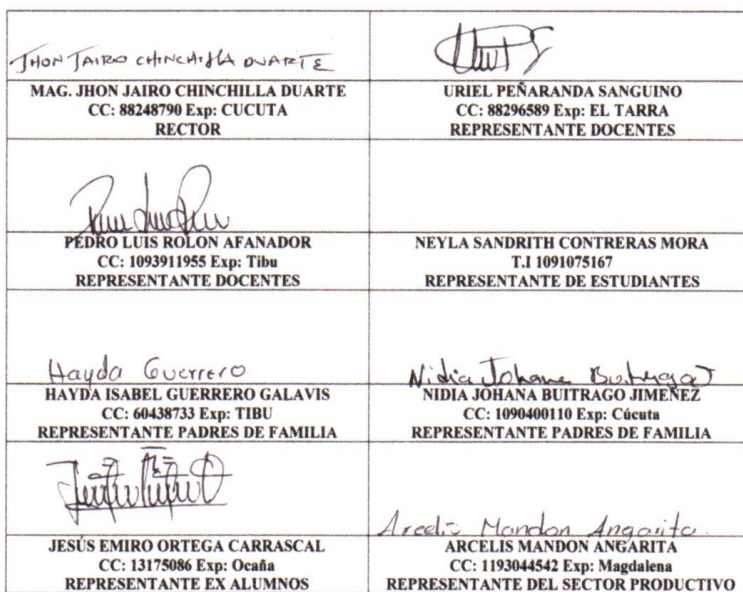 JHON JAIRO CHINCHILLA DUARTE
MAG. JHON JAIRO CHINCHILLA DUARTE
CC: 88248790 Exp: CUCUTA
RECTOR
URIEL PEÑARANDA SANGUINO
CC: 88296589 Exp: EL TARRA
REPRESENTANTE DOCENTES
PEDRO LUIS ROLON AFANADOR
CC: 1093911955 Exp: Tibu
REPRESENTANTE DOCENTES
NEYLA SANDRITH CONTRERAS MORA
T.I 1091075167
REPRESENTANTE DE ESTUDIANTES
Hayda Guerrero
HAYDA ISABEL GUERRERO GALAVIS
CC: 60438733 Exp: TIBU
REPRESENTANTE PADRES DE FAMILIA
Nidia Johana Buitrago J
NIDIA JOHANA BUITRAGO JIMENEZ
CC: 1090400110 Exp: Cúcuta
REPRESENTANTE PADRES DE FAMILIA
JESÚS EMIRO ORTEGA CARRASCAL
CC: 13175086 Exp: Ocaña
REPRESENTANTE EX ALUMNOS
Arcelis Mandon Angarita
ARCELIS MANDON ANGARITA
CC: 1193044542 Exp: Magdalena
REPRESENTANTE DEL SECTOR PRODUCTIVO